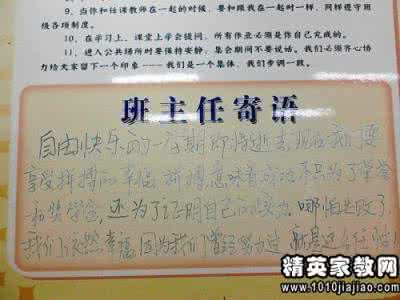 9、当你和任课教师在一起的时候，要和跟我在一起时一样，同样遵守班
级各项制度。
10、在学习上，课堂上学会提问，所有作业必须是你自己完成的。
11、进入公共场所时要保持安静；集会期间不要说话。我们必须齐心协
力给大家留下一个印象——我们是一个集体，我们步调一致。
班主任寄语
自由快乐的一星期即将逝去现在我们要
享受拼搏的幸福 拼搏意味着成功不只为了荣誉
和奖学金，还为了证明自己的实力。哪怕失败了
我们依然幸福因为我们曾经努力过
精英家教网
www.1010jiajiao.com